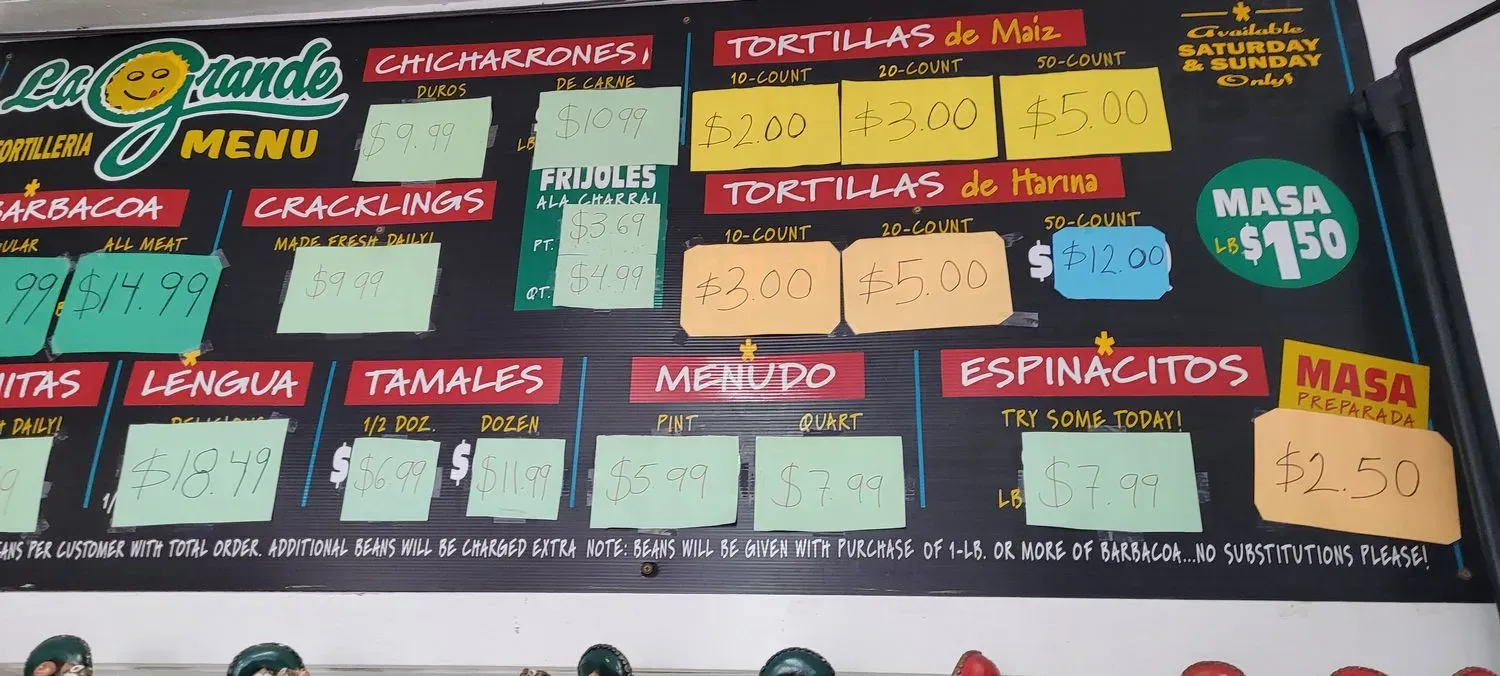 La Grande
TORTILLERIA MENU
CHICHARRONES!
DUROS
$9.99
DE CARNE
LB $10.99
FRIJOLES
A LA CHARRA!
PT. $3.69
QT. $4.99
TORTILLAS de Maiz
10-COUNT 20-COUNT 50-COUNT
$2.00 $3.00 $5.00
TORTILLAS de Harina
10-COUNT 20-COUNT 50-COUNT
$3.00 $5.00 $ $12.00
* Available
SATURDAY
& SUNDAY
Only!
MASA
LB $1.50
*
BARBACOA
ULAR ALL MEAT
99 $14.99
CRACKLINGS
MADE FRESH DAILY!
$9.99
ITAS
DAILY!
9
*
LENGUA
DELICIOUS
$18.49
TAMALES
1/2 DOZ. DOZEN
$ $6.99 $ $11.99
*
MENUDO
PINT QUART
$5.99 $7.99
*
ESPINACITOS
TRY SOME TODAY!
LB $7.99
MASA
PREPARADA
$2.50
ANS PER CUSTOMER WITH TOTAL ORDER. ADDITIONAL BEANS WILL BE CHARGED EXTRA NOTE: BEANS WILL BE GIVEN WITH PURCHASE OF 1-LB. OR MORE OF BARBACOA...NO SUBSTITUTIONS PLEASE!